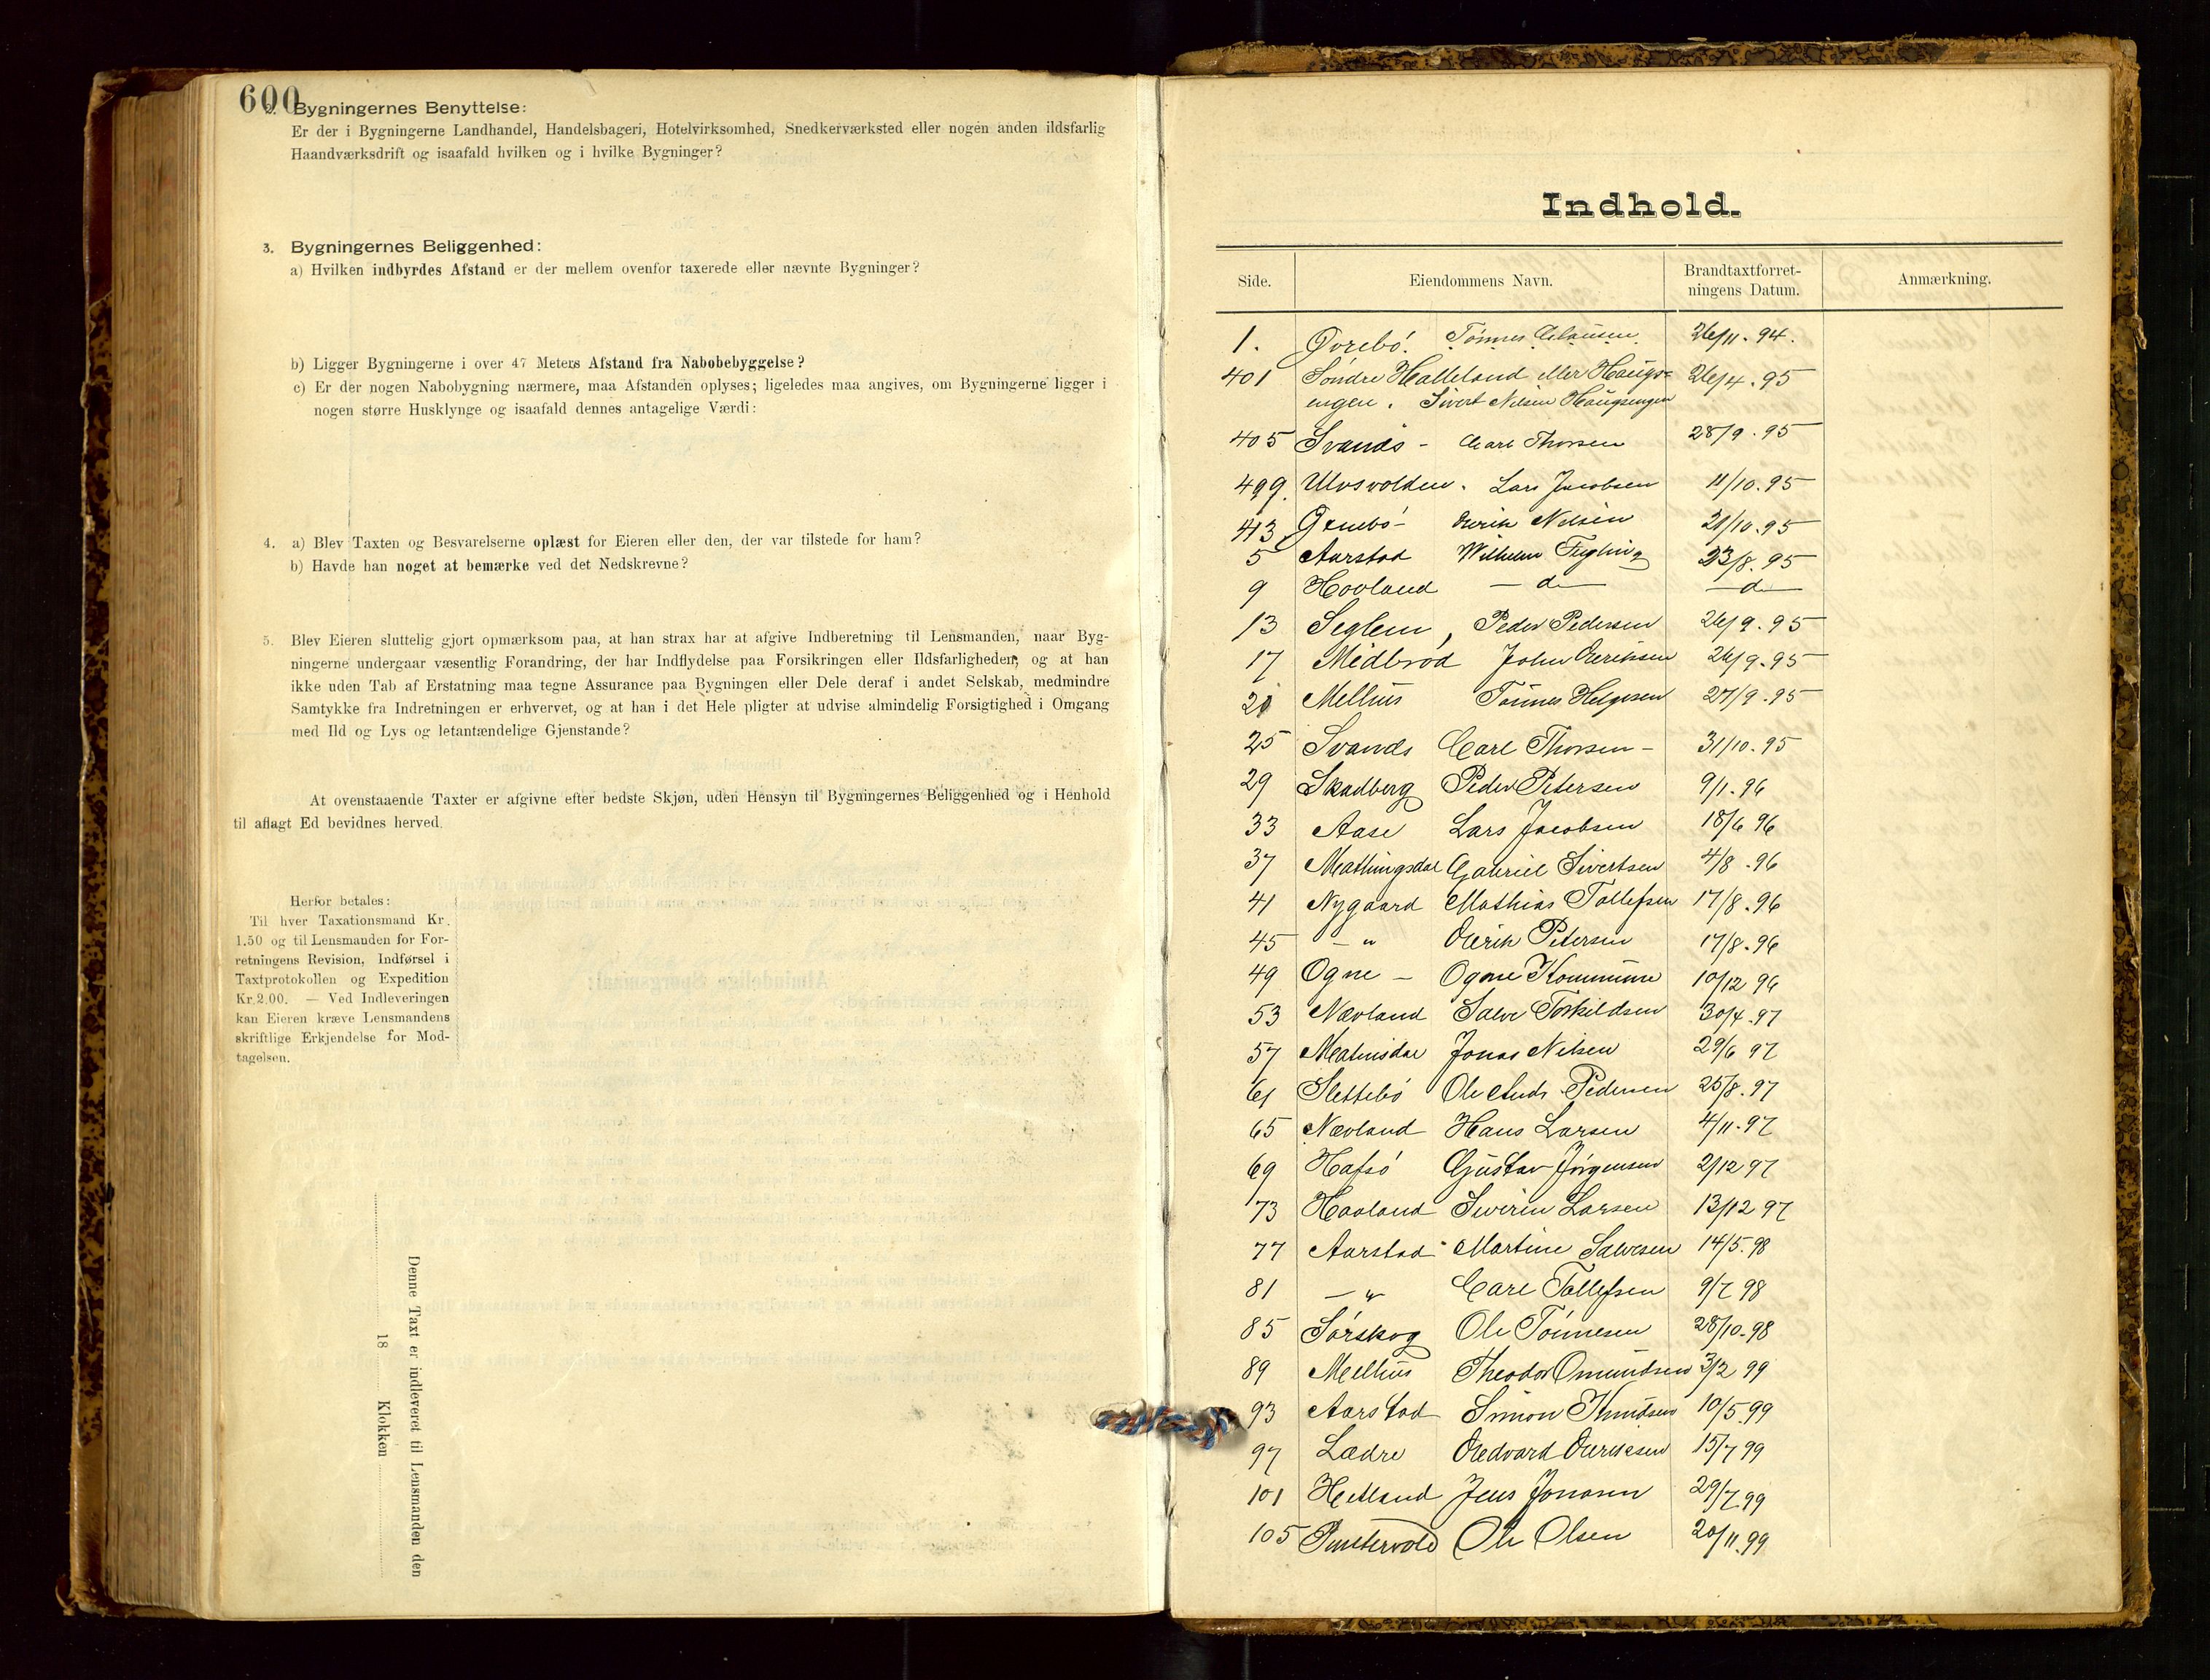 600
2. Bygningernes Benyttelse:
Er der i Bygningerne Landhandel, Handelsbageri, Hotelvirksomhed, Snedkerværksted eller nogen anden ildsfarlig
Haandværksdrift og isaafald hvilken og i hvilke Bygninger?
3. Bygningernes Beliggenhed:
a) Hvilken indbyrdes Afstand er der mellem ovenfor taxerede eller nævnte Bygninger?
b) Ligger Bygningerne i over 47 Meters Afstand fra Nabobebyggelse?
c) Er der nogen Nabobygning nærmere, maa Afstanden oplyses; ligeledes maa angives, om Bygningerne ligger i
nogen større Husklynge og isaafald dennes antagelige Værdi:
4. a) Blev Taxten og Besvarelserne oplæst for Eieren eller den, der var tilstede for ham?
b) Havde han noget at bemærke ved det Nedskrevne?
5. Blev Eieren sluttelig gjort opmærksom paa, at han strax har at afgive Indberetning til Lensmanden, naar Byg-
ningerne undergaar væsentlig Forandring, der har Indflydelse paa Forsikringen eller Ildsfarligheden, og at han
ikke uden Tab af Erstatning maa tegne Assurance paa Bygningen eller Dele deraf i andet Selskab, medmindre
Samtykke fra Indretningen er erhvervet, og at han i det Hele pligter at udvise almindelig Forsigtighed i Omgang
med Ild og Lys og letantændelige Gjenstande?
At ovenstaaende Taxter er afgivne efter bedste Skjøn, uden Hensyn til Bygningernes Beliggenhed og i Henhold
til aflagt Ed bevidnes herved.
Herfor betales:
Til hver Taxationsmand Kr.
1.50 og til Lensmanden for For-
retningens Revision, Indførsel i
Taxtprotokollen og Expedition
Kr. 2.00. — Ved Indleveringen
kan Eieren kræve Lensmandens
skriftlige Erkjendelse for Mod-
tagelsen.
Denne Taxt er indleveret til Lensmanden den
18 Klokken
Indhold.
Side. Eiendommens Navn. Brandtaxtforret- Anmærkning.
ningens Datum.
1. Øvrebö. Tönnes Clausen. 26/11. 94.
401 Söndre Halleland eller Haugs= 26/4. 95
engen. Sivert Nilsen Haugsengen
405 Svands - Carl Thorsen 28/9. 95
499. Ulvsvolden. Lars Jacobsen 11/10. 95
413 - Eerik Nilsen 21/10. 95
5 Aarstad Wilhelm 23/8. 95
9 Hovland — d — — d —
13 Seglem, Peder Pedersen 26/9. 95
17 Medbröd John Eeriksen 26/9. 95
21 Melhus Tönnes Helgesen 27/9. 95
25 Svands Carl Thorsen - 31/10. 95
29 Skadberg Peder Petersen 9/1. 96
33 Aase Lars Jacobsen 18/6 96
37 Mathingsdal Gabriel Sivertsen 4/8. 96
41 Nygaard Mathias Tollefsen 17/8. 96
45 — " Eerik Petersen 17/8. 96
49 Ogne — Ogne Kommune 10/12 96
53 Nævland Salve Torkildsen 30/4. 97
57 Jonas Nilsen 29/6 97
61 Slettebö Ole Andr. Pedersen 25/8. 97
65 Nævland Hans Larsen 4/11. 97
69 Hafsö Gustav Jörgensen 2/12 97
73 Haaland Siverin Larsen 13/12 97
77 Aarstad Martin Salvesen 14/5. 98
81 — " Carl Tollefsen 9/7 98
85 Sörskog Ole Tönnesen 28/10. 98
89 Melhus Theodor Omundsen 3/2 99
93 Aarstad Simon Knudsen 10/5. 99
97 Lædre Edvard Eeriksen 15/7 99
101 Hetland Jens Jonasen 29/7 99
105 Ole Olsen 20/11. 99